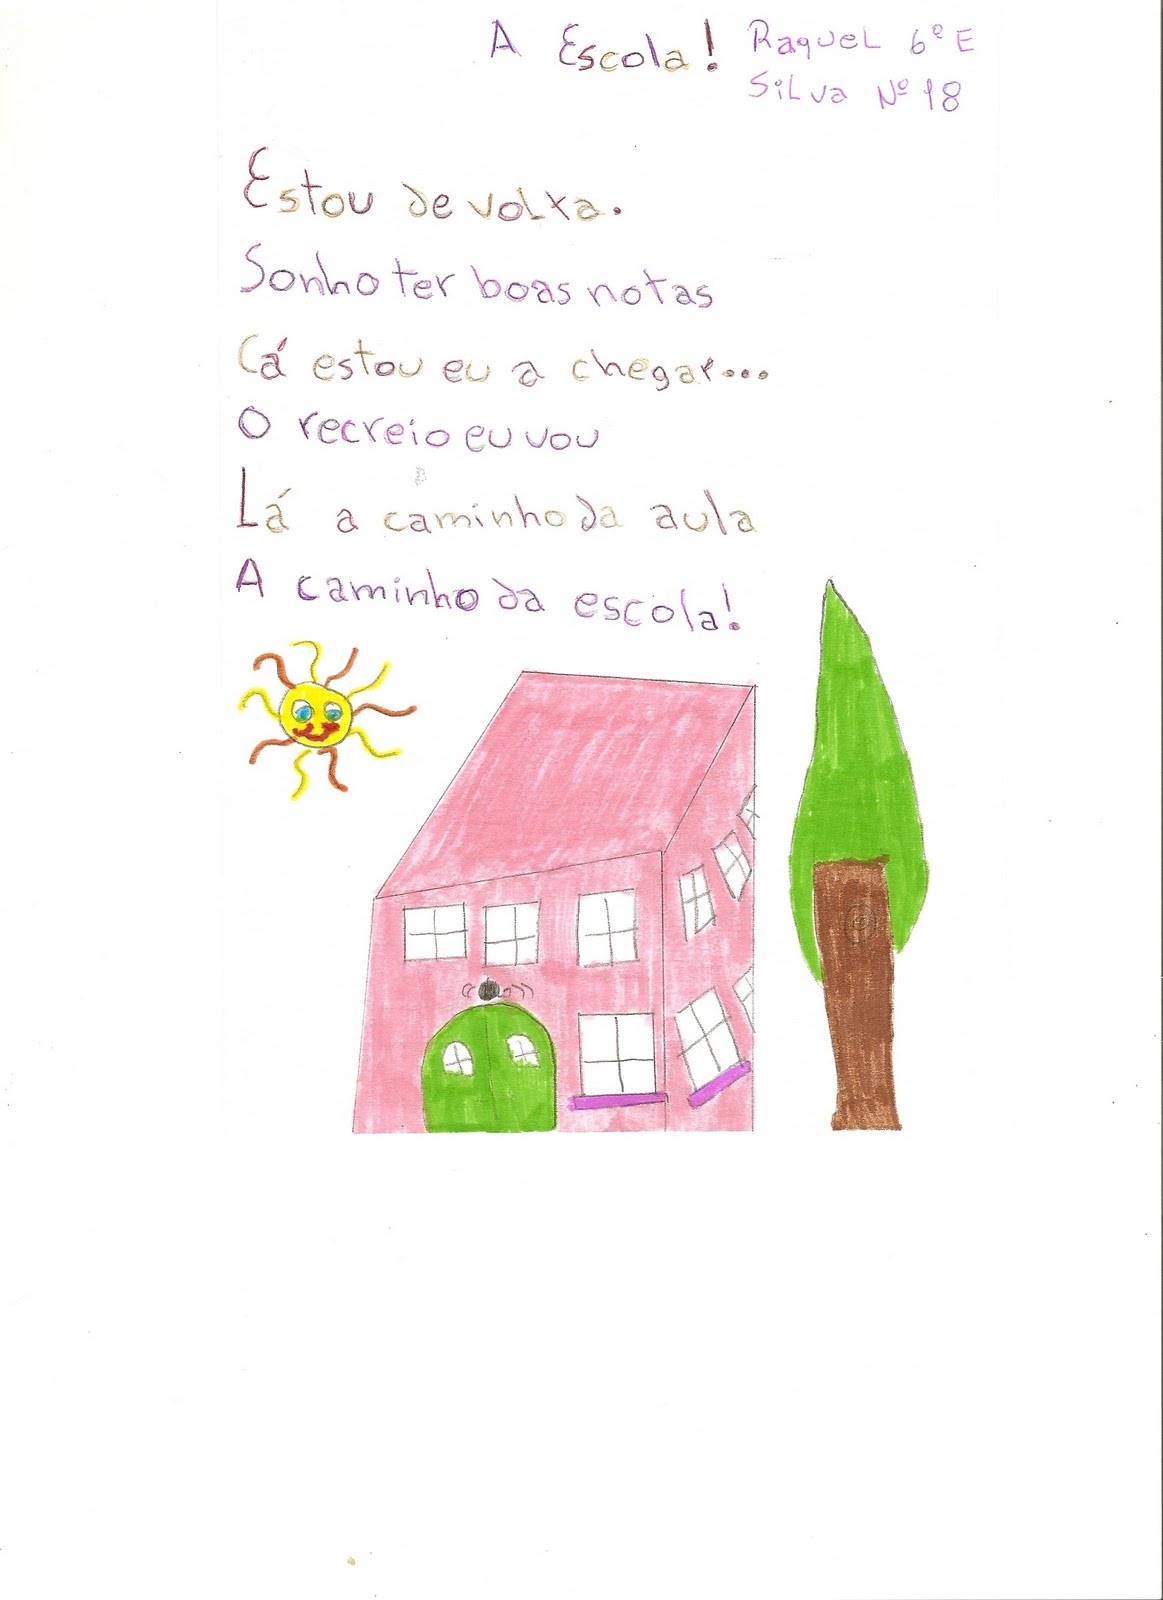 A Escola! Raquel 6º E
Silva Nº 18
Estou de volta.
Sonho ter boas notas
Cá estou eu a chegar...
O recreio eu vou
Lá a caminho da aula
A caminho da escola!